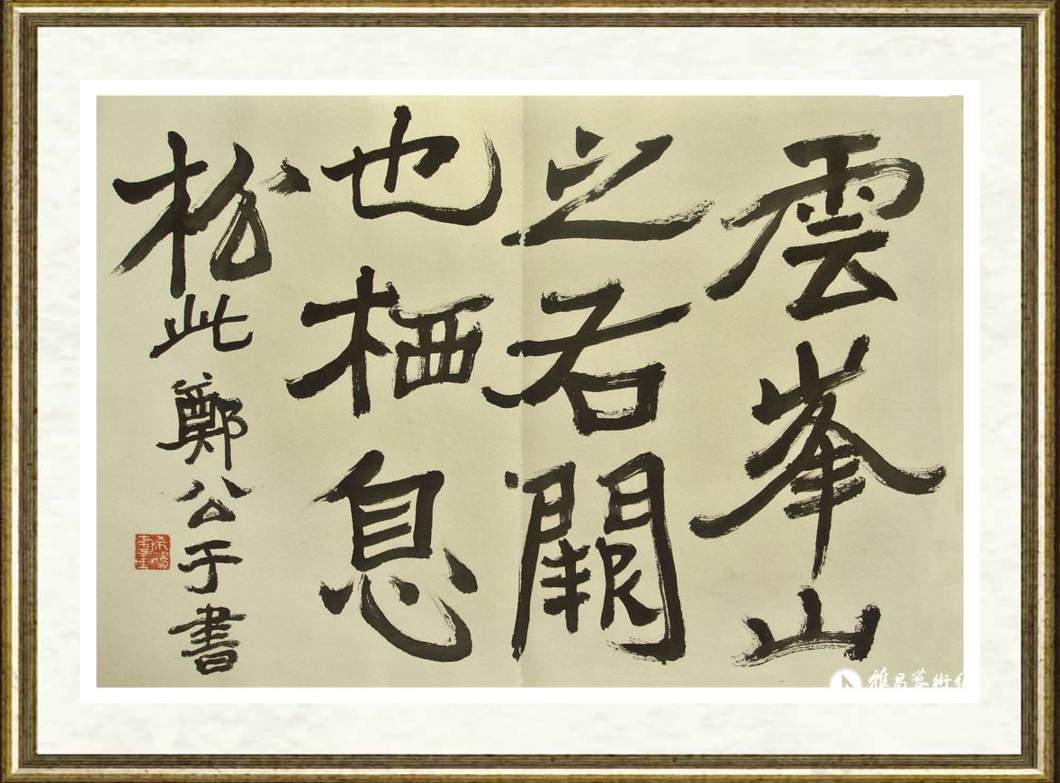 雲峯山
之右闕
也栖息
松此
鄭公于書
雅昌藝術